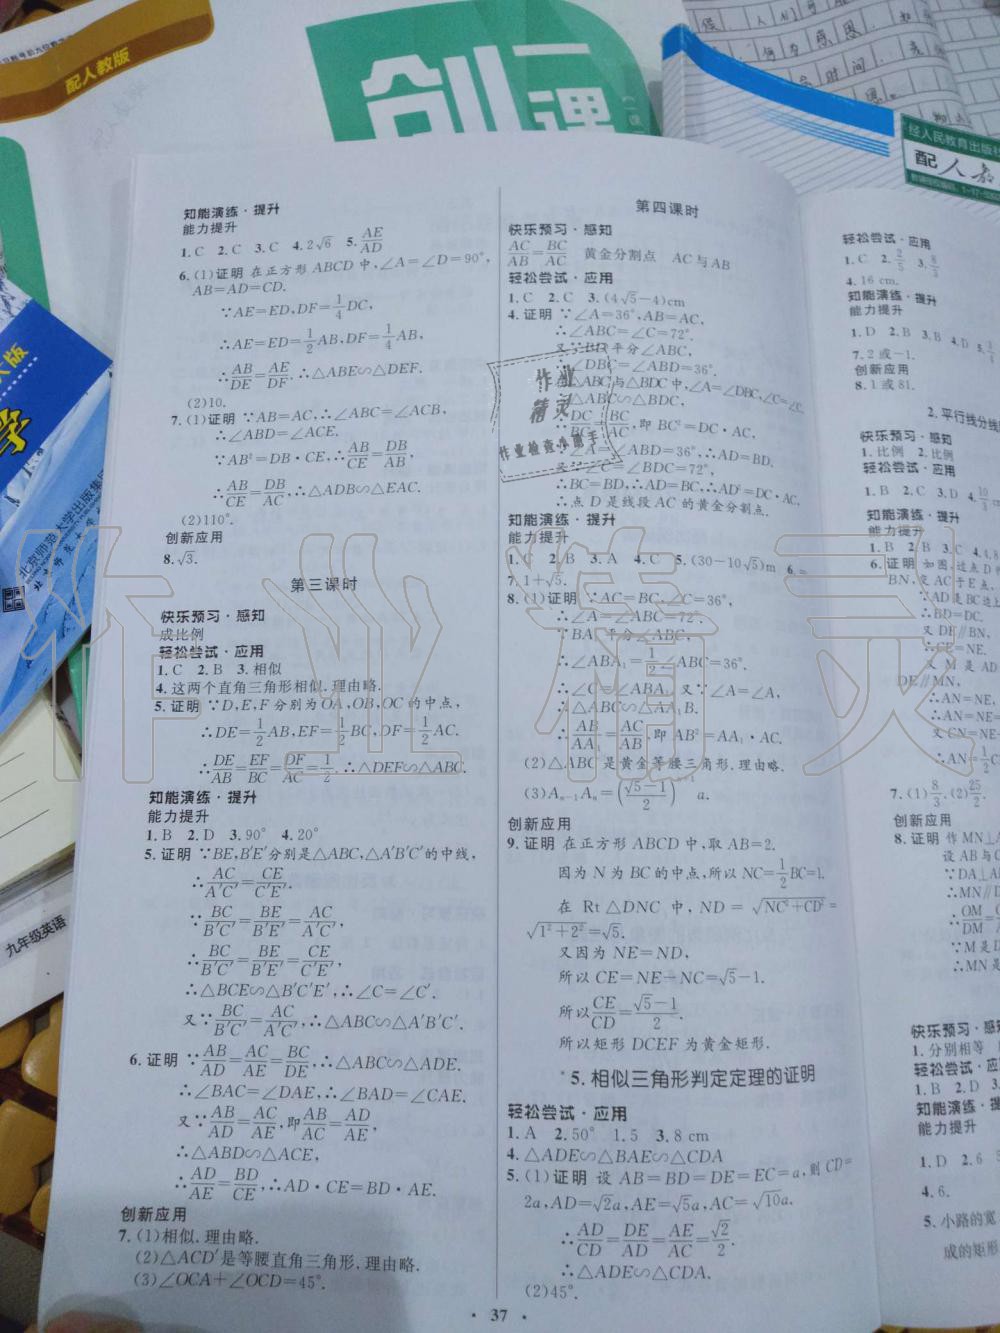 配人教版
创
一课
经人民教育出版社
配人教
九年级英语
北京师范大学出版集团
知能演练·提升
能力提升
1.C 2.C 3.C 4.2√6 5.AE/AD
6.(1)证明 在正方形 ABCD 中,∠A=∠D=90°,
AB=AD=CD.
∵AE=ED,DF=1/4DC,
∴AE=ED=1/2AB,DF=1/4AB,
∴AB/DE=AE/DF.∴△ABE∽△DEF.
(2)10.
7.(1)证明 ∵AB=AC,∴∠ABC=∠ACB,
∴∠ABD=∠ACE,
∵AB²=DB·CE,∴AB/CE=DB/AB,
∴AB/CE=DB/AC,∴△ADB∽△EAC.
(2)110°.
创新应用
8.√3.
第三课时
快乐预习·感知
成比例
轻松尝试·应用
1.C 2.B 3.相似
4.这两个直角三角形相似.理由略.
5.证明 ∵D,E,F分别为OA,OB,OC的中点,
∴DE=1/2AB,EF=1/2BC,DF=1/2AC.
∴DE/AB=EF/BC=DF/AC=1/2.∴△DEF∽△ABC.
知能演练·提升
能力提升
1.B 2.D 3.90° 4.20°
5.证明 ∵BE,B′E′分别是△ABC,△A′B′C′的中线,
∴AC/A′C′=CE/C′E′.
∵BC/B′C′=BE/B′E′=AC/A′C′,
∴BC/B′C′=BE/B′E′=CE/C′E′,
∴△BCE∽△B′C′E′,∴∠C=∠C′.
又∵BC/B′C′=AC/A′C′,∴△ABC∽△A′B′C′.
6.证明 ∵AB/AD=AC/AE=BC/DE,∴△ABC∽△ADE.
∴∠BAC=∠DAE,∴∠BAD=∠CAE.
又∵AB/AD=AC/AE,即AB/AC=AD/AE,
∴△ABD∽△ACE,
∴AD/AE=BD/CE,∴AD·CE=BD·AE.
创新应用
7.(1)相似.理由略.
(2)△ACD′是等腰直角三角形.理由略.
(3)∠OCA+∠OCD=45°.
第四课时
快乐预习·感知
AC/AB=BC/AC 黄金分割点 AC与AB
轻松尝试·应用
1.C 2.C 3.(4√5-4)cm
4.证明 ∵∠A=36°,AB=AC,
∴∠ABC=∠C=72°.
又∵BD平分∠ABC,
∴∠DBC=∠ABD=36°.
在△ABC与△BDC中,∠A=∠DBC,∠C=∠C,
∴△ABC∽△BDC,
∴DC/BC=BC/AC,即BC²=DC·AC.
∵∠A=∠ABD=36°,∴AD=BD.
又∵∠C=∠BDC=72°,
∴BC=BD,∴AD=BC,∴AD²=DC·AC.
∴点D是线段AC的黄金分割点.
知能演练·提升
能力提升
1.C 2.B 3.A 4.C 5.(30-10√5)m 6.=
7.1+√5.
8.(1)证明 ∵AC=BC,∠C=36°,
∴∠A=∠ABC=72°.
∵BA₁平分∠ABC,
∴∠ABA₁=1/2∠ABC=36°.
∴∠C=∠ABA₁.又∵∠A=∠A,
∴△ABC∽△AA₁B.
∴AB/AA₁=AC/AB,即AB²=AA₁·AC.
(2)△ABC是黄金等腰三角形.理由略.
(3)Aₙ₋₁Aₙ=((√5-1)/2) a.
创新应用
9.证明 在正方形ABCD中,取AB=2.
因为N为BC的中点,所以NC=1/2BC=1.
在 Rt△DNC 中,ND=√(NC²+CD²)=
√(1²+2²)=√5.
又因为NE=ND,
所以CE=NE-NC=√5-1.
所以CE/CD=(√5-1)/2.
所以矩形DCEF为黄金矩形.
*5.相似三角形判定定理的证明
轻松尝试·应用
1.A 2.50° 1.5 3.8 cm
4.△ADE∽△BAE∽△CDA
5.(1)证明 设AB=BD=DE=EC=a,则CD=
2a,AD=√2a,AE=√5a,AC=√10a.
∴AD/CD=DE/DA=AE/AC=√2/2.
∴△ADE∽△CDA.
(2)45°.
37
轻松尝试·应用
1.C 2.2/5 3.8/3
4.16 cm.
知能演练·提升
能力提升
1.D 2.B 3.B 4.D
7.2或-1.
创新应用
8.1或81.
2.平行线分线段
快乐预习·感知
1.比例 2.比例
轻松尝试·应用
1.B 2.C 3.D 4.10/3
知能演练·提升
能力提升
1.B 2.B 3.C
6.证明 如图,过点D作
BN,交AC于E点,
∵AD是BC边上
∴BD=DC.
又DE∥BN,
∴CE=NE.
又M是AD
DE∥MN,
∴AN=NE.
∴AN=NE=
又CN=NE=
∴AN=1/2C
7.(1)8/3.(2)25/2.
创新应用
8.证明 作MN⊥
设AB与C
∵DA⊥
∴MN∥
∴OM/DM=O/A
∵M是D
∴MN是
快乐预习·感知
1.分别相等
轻松尝试·应用
1.B 2.D 3.C
知能演练·提升
能力提升
1.D 2.6
4.6.
5.小路的宽
成的矩形
作业
精灵
作业检查小助手
作业精灵